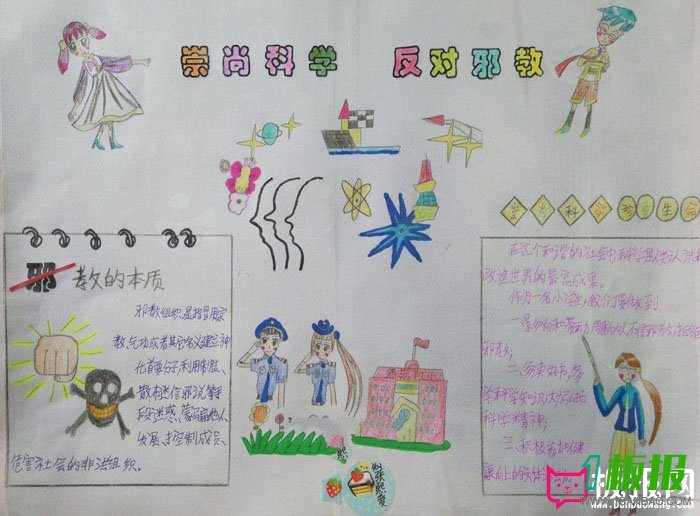 崇尚科学 反对邪教
邪教的本质
邪教组织是指冒用宗
教、气功或者其它名义建立、神
化首要分子,利用制造、
散布迷信邪说等
手段迷惑、蒙骗他人,
发展、控制成员、
危害社会的非法组织。
科学
生命
在这个和谐的社会中,科学是人类认识和
改造世界的最高成果。
作为一名小学生,我们要做到
一、
邪教;
二、
学科学知识,大力弘扬
科学精神;
三、积极参加健
康向上的文体活
板报